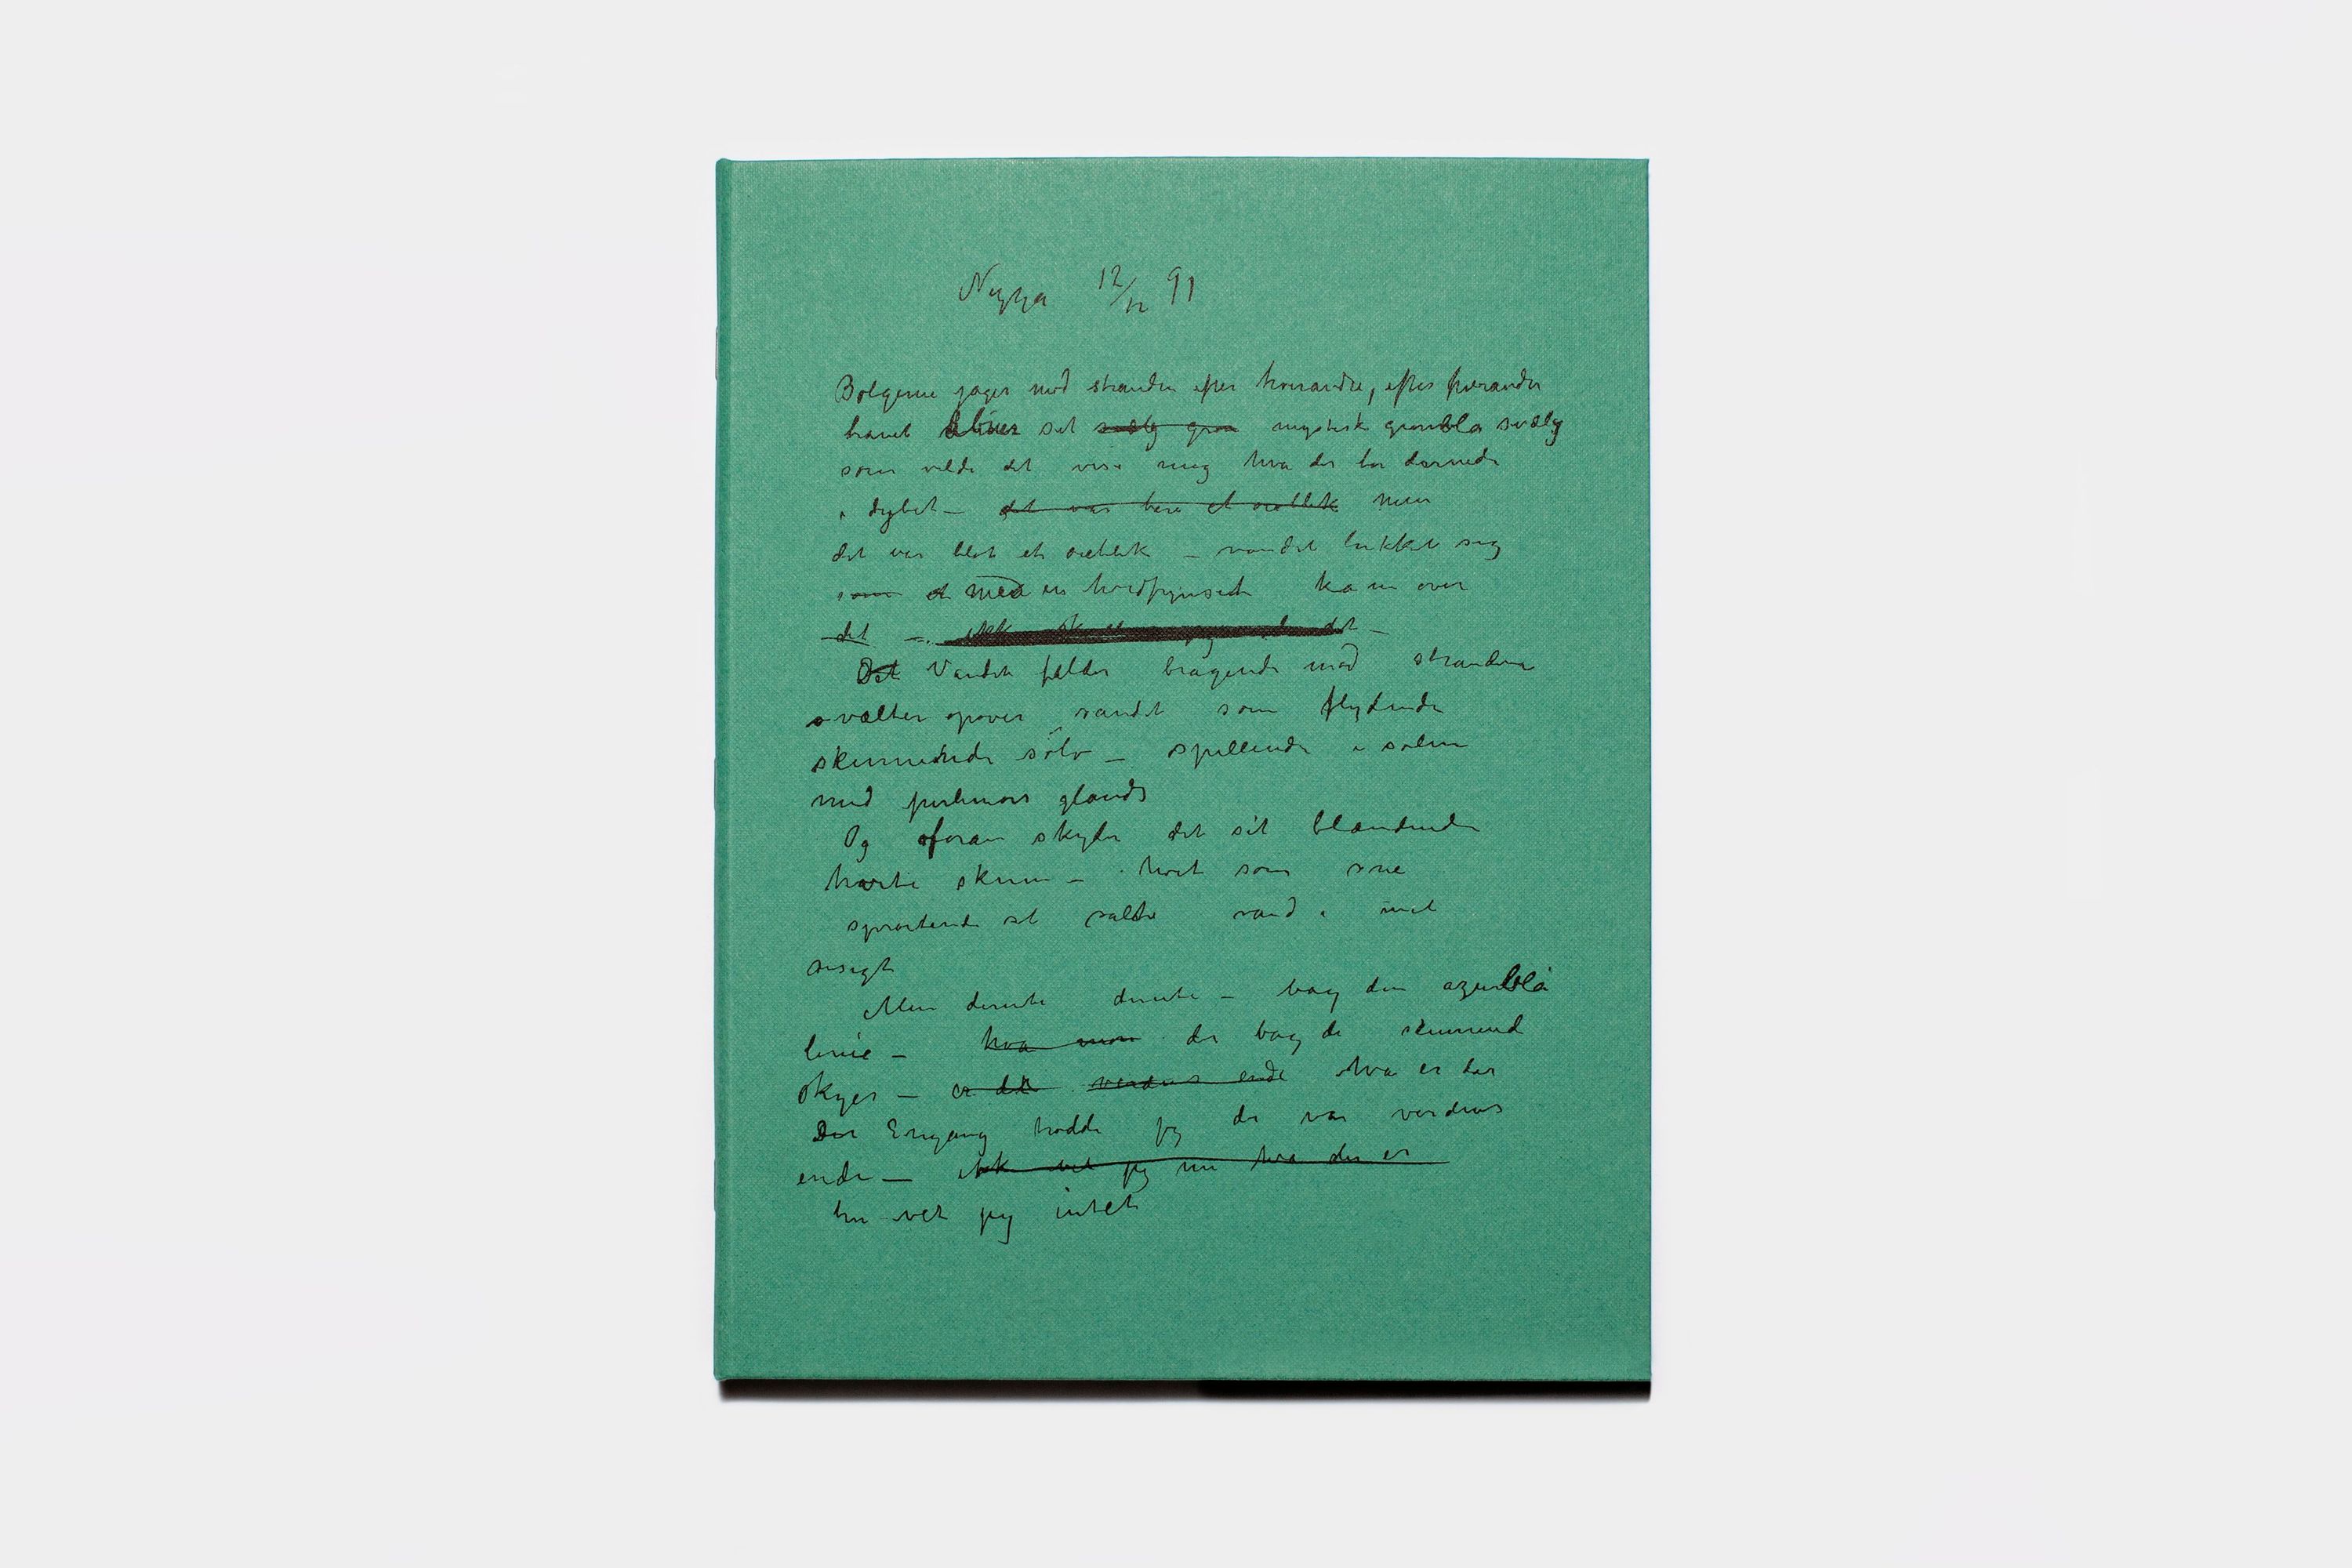 Nizza 12/12 91
Bølgerne jager mod stranden efter hverandre, efter hverandre
havet åbner sit svælg grøn mystisk grønblå svælg
som vilde det vise mig hva der bor dernede
i dybet — det var bare et øieblik men
det var blot et øieblik — vandet lukket sig
som et med en hvidfrynset kam over
det —
Det Vandet falder bragende mod stranden
vælter opover sandet som flydende
skinnende sølv — spillende i solen
med perlemors glands
Og foran skyder det sit blændende
hvite skum — hvit som sne
sprøitende sit salte vand i mit
ansigt
Men derute derute — bag den azurblå
linie — hva mon der bag de skinnend
skyer — er det verdens ende hva er der
Engang trodde jeg der var verdens
ende — ikke vet jeg nu hva der er
nu vet jeg intet